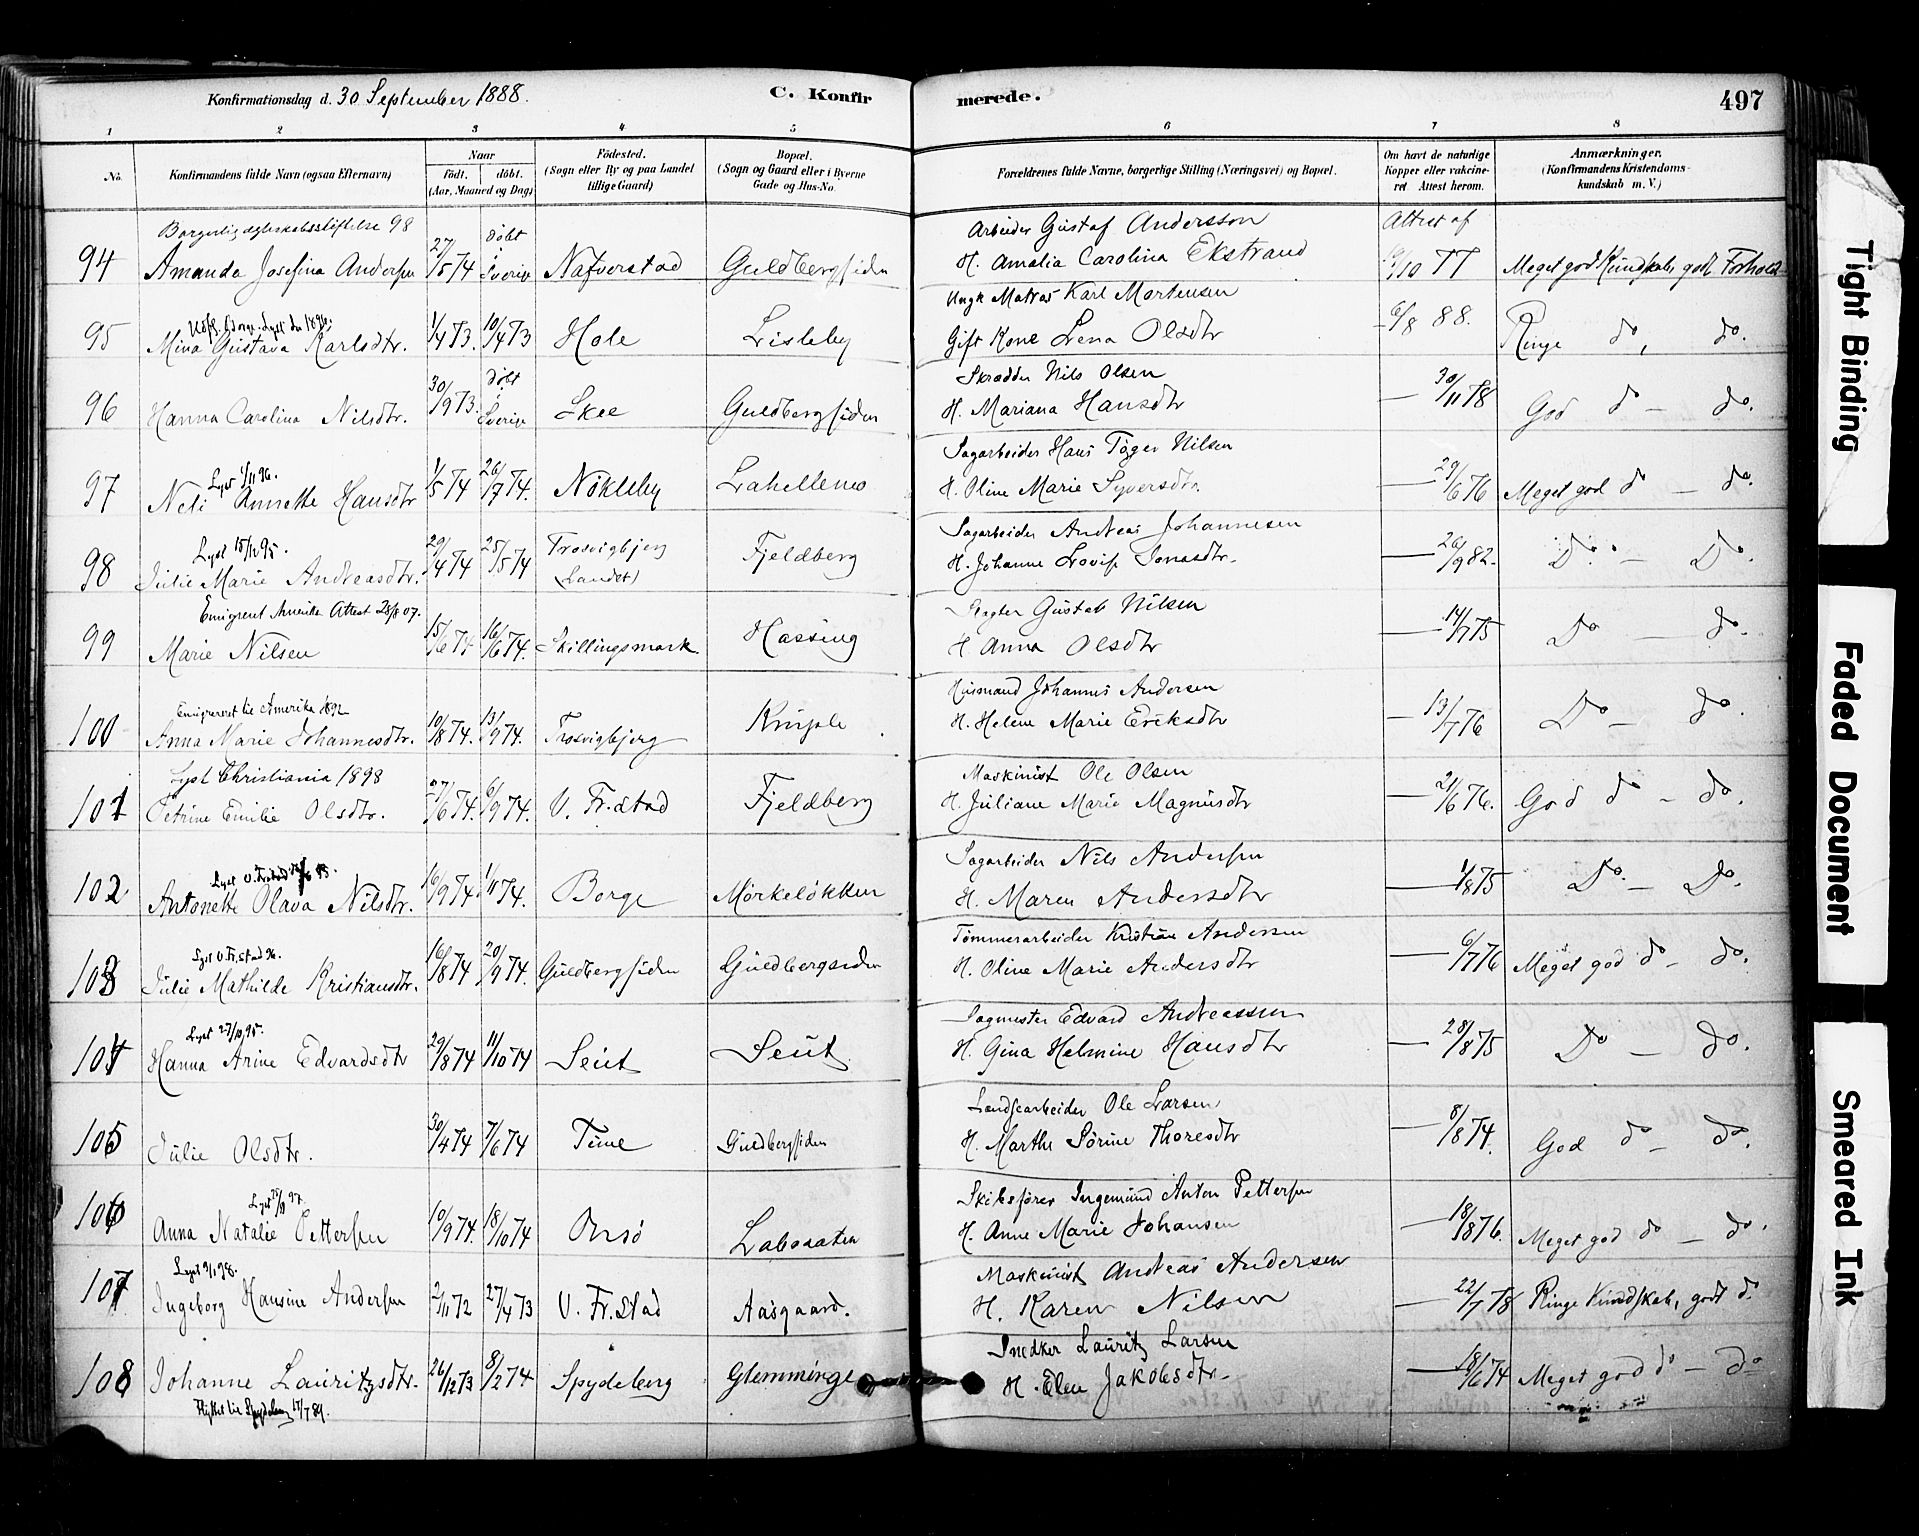 Konfirmationsdag d. 30 September 1888.
C. Konfirmerede.
497
1 2 3 4 5 6 7 8
No.
Konfirmandens fulde Navn (ogsaa Efternavn)
Naar
født. døbt.
(Aar, Maaned og Dag)
Fødested.
(Sogn eller By og paa Landet tillige Gaard)
Bopæl.
(Sogn og Gaard eller i Byerne Gade og Hus-No.
Forældrenes fulde Navne, borgerlige Stilling (Næringsvei) og Bopæl.
Om havt de naturlige Kopper eller vakcineret Attest herom.
Anmærkninger.
(Konfirmandens Kristendomskundskab m. V.)
Borgerlig ægteskabsstiftelse 98 døbt Arbeider Gustaf Andersson Attest af
94 Amanda Josefina Andersen 27/5 74 i Sverige Nafverstad Guldbergsiden H. Amalia Carolina Ekstrand /10 77 Meget god Kundskab, godt Forhold
Ungk Matros Karl Martensen
95 Mina Gustava Karlsdtr. 1/4 73. 10/4 73 Hole Lisleby Gift Kone Lena Olsdtr 6/8 88. Ringe do, do.
døbt Skrædder Nils Olsen
96 Hanna Carolina Nilsdtr. 30/9 73. i Sverige Skee Guldbergsiden H. Mariana Hansdtr — 30/11 78 God do — do.
Lyst 1/11 96. Sagarbeider Hans Töger Nilsen
97 Neti Annette Hansdtr 1/5 74 26/7 74. Nökleby Lahellemo H. Oline Marie Syversdtr. — 29/6 76 Meget god do — do.
Lyst 15/12 95. Sagarbeider Andreas Johannesen
98 Julie Marie Andreasdtr. 29/4 74 25/5 74 Trosvigbjerg (Landet) Fjeldberg H. Johanne Lovise Jonasdtr. — 26/9 82. Do. — Do.
Emigrent Amerika Attest 28/8 07. Gustab Nilsen
99 Marie Nilsen 15/6 74. 16/6 74. Skillingsmark Hassing H. Anna Olsdtr — 14/7 75 Do — do.
Emigreret til Amerika 1892 Husmand Johannes Andersen
100 Anna Marie Johannesdtr. 10/8 74. 13/9 74. Trosvigbjerg Kniple H. Helene Marie Eriksdtr — 13/7 76 Do — do.
Lyst Christiania 1898 Maskinist Ole Olsen
101 Petrine Emilie Olsdtr. 27/6 74. 6/9 74. V. Fr.stad Fjeldberg H. Juliane Marie Magnusdtr — 21/6 76. God do — do.
Sagarbeider Nils Andersen
102 Antonette Olava Nilsdtr. 16/9 74. 1/11 74. Borge Mörkelökken H. Maren Andersdtr — 1/8 75 Do. — Do.
Lyst V. Fr.stad 96. Tömmerarbeider Kristian Andersen
103 Julie Mathilde Kristiansdtr. 16/8 74 20/9 74. Guldbergsiden Guldbergsiden H. Oline Marie Andersdtr — 6/7 76 Meget god do — do.
Lyst 27/10 95. Sagmester Edvard Andreassen
104 Hanna Arine Edvardsdtr 29/8 74 11/10 74 Seut Seut. H. Gina Helmine Hansdtr — 28/8 75 Do — do.
Landsearbeider Ole Larsen
105 Julie Olsdtr. 30/4 74 7/6 74 Tune Guldbergsiden H. Marthe Sörine Thoresdtr — 8/8 74. God do — do.
Skibsförer Ingemund Anton Pettersen
106 Anna Natalie Pettersen 10/9 74. 18/10 74 Onsö Laboraten H. Anne Marie Johansen — 18/8 76. Meget god do — do.
Maskinist Andreas Andersen
107 Ingeborg Hansine Andersen 2/11 72 27/4 73 V. Fr.Stad Aasgaard. H. Karen Nilsen — 22/7 78 Ringe Kundskab, godt do.
Snedker Lauritz Larsen
108 Johanne Lauritzsdtr. 26/12 73 8/2 74 Spydeberg Glemminge H. Elen Jakobsdtr. — 18/6 74 Meget god do — do
Flyttet til Spydeberg 17/7 89.
Tight Binding
Faded Document
Smeared Ink